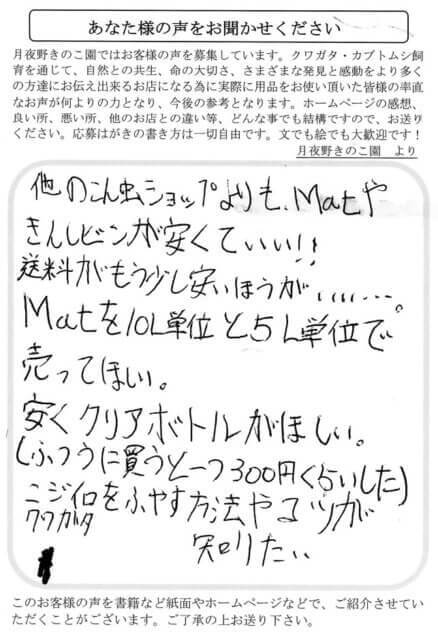 あなた様の声をお聞かせください
月夜野きのこ園ではお客様の声を募集しています。クワガタ・カブトムシ飼
育を通じて、自然との共生、命の大切さ、さまざまな発見と感動をより多く
の方達にお伝え出来るお店になる為に実際に用品をお使い頂いた皆様の率直
なお声が何よりの力となり、今後の参考となります。ホームページの感想、
良い所、悪い所、他のお店との違い等、どんな事でも結構ですので、お送り
ください。応募はがきの書き方は一切自由です。文でも絵でも大歓迎です！
月夜野きのこ園 より
他のこん虫ショップよりも、Matや
きんしビンが安くていい!!
送料がもう少し安いほうが、、、、、……。
Matを10L単位と5L単位で
売ってほしい。
安くクリアボトルがほしい。
(ふつうに買うと一つ300円くらいした)
ニジイロ
クワガタをふやす方法やコツが
知りたい
このお客様の声を書籍など紙面やホームページなどで、ご紹介させてい
ただくことがございます。ご了承の上お送り下さい。